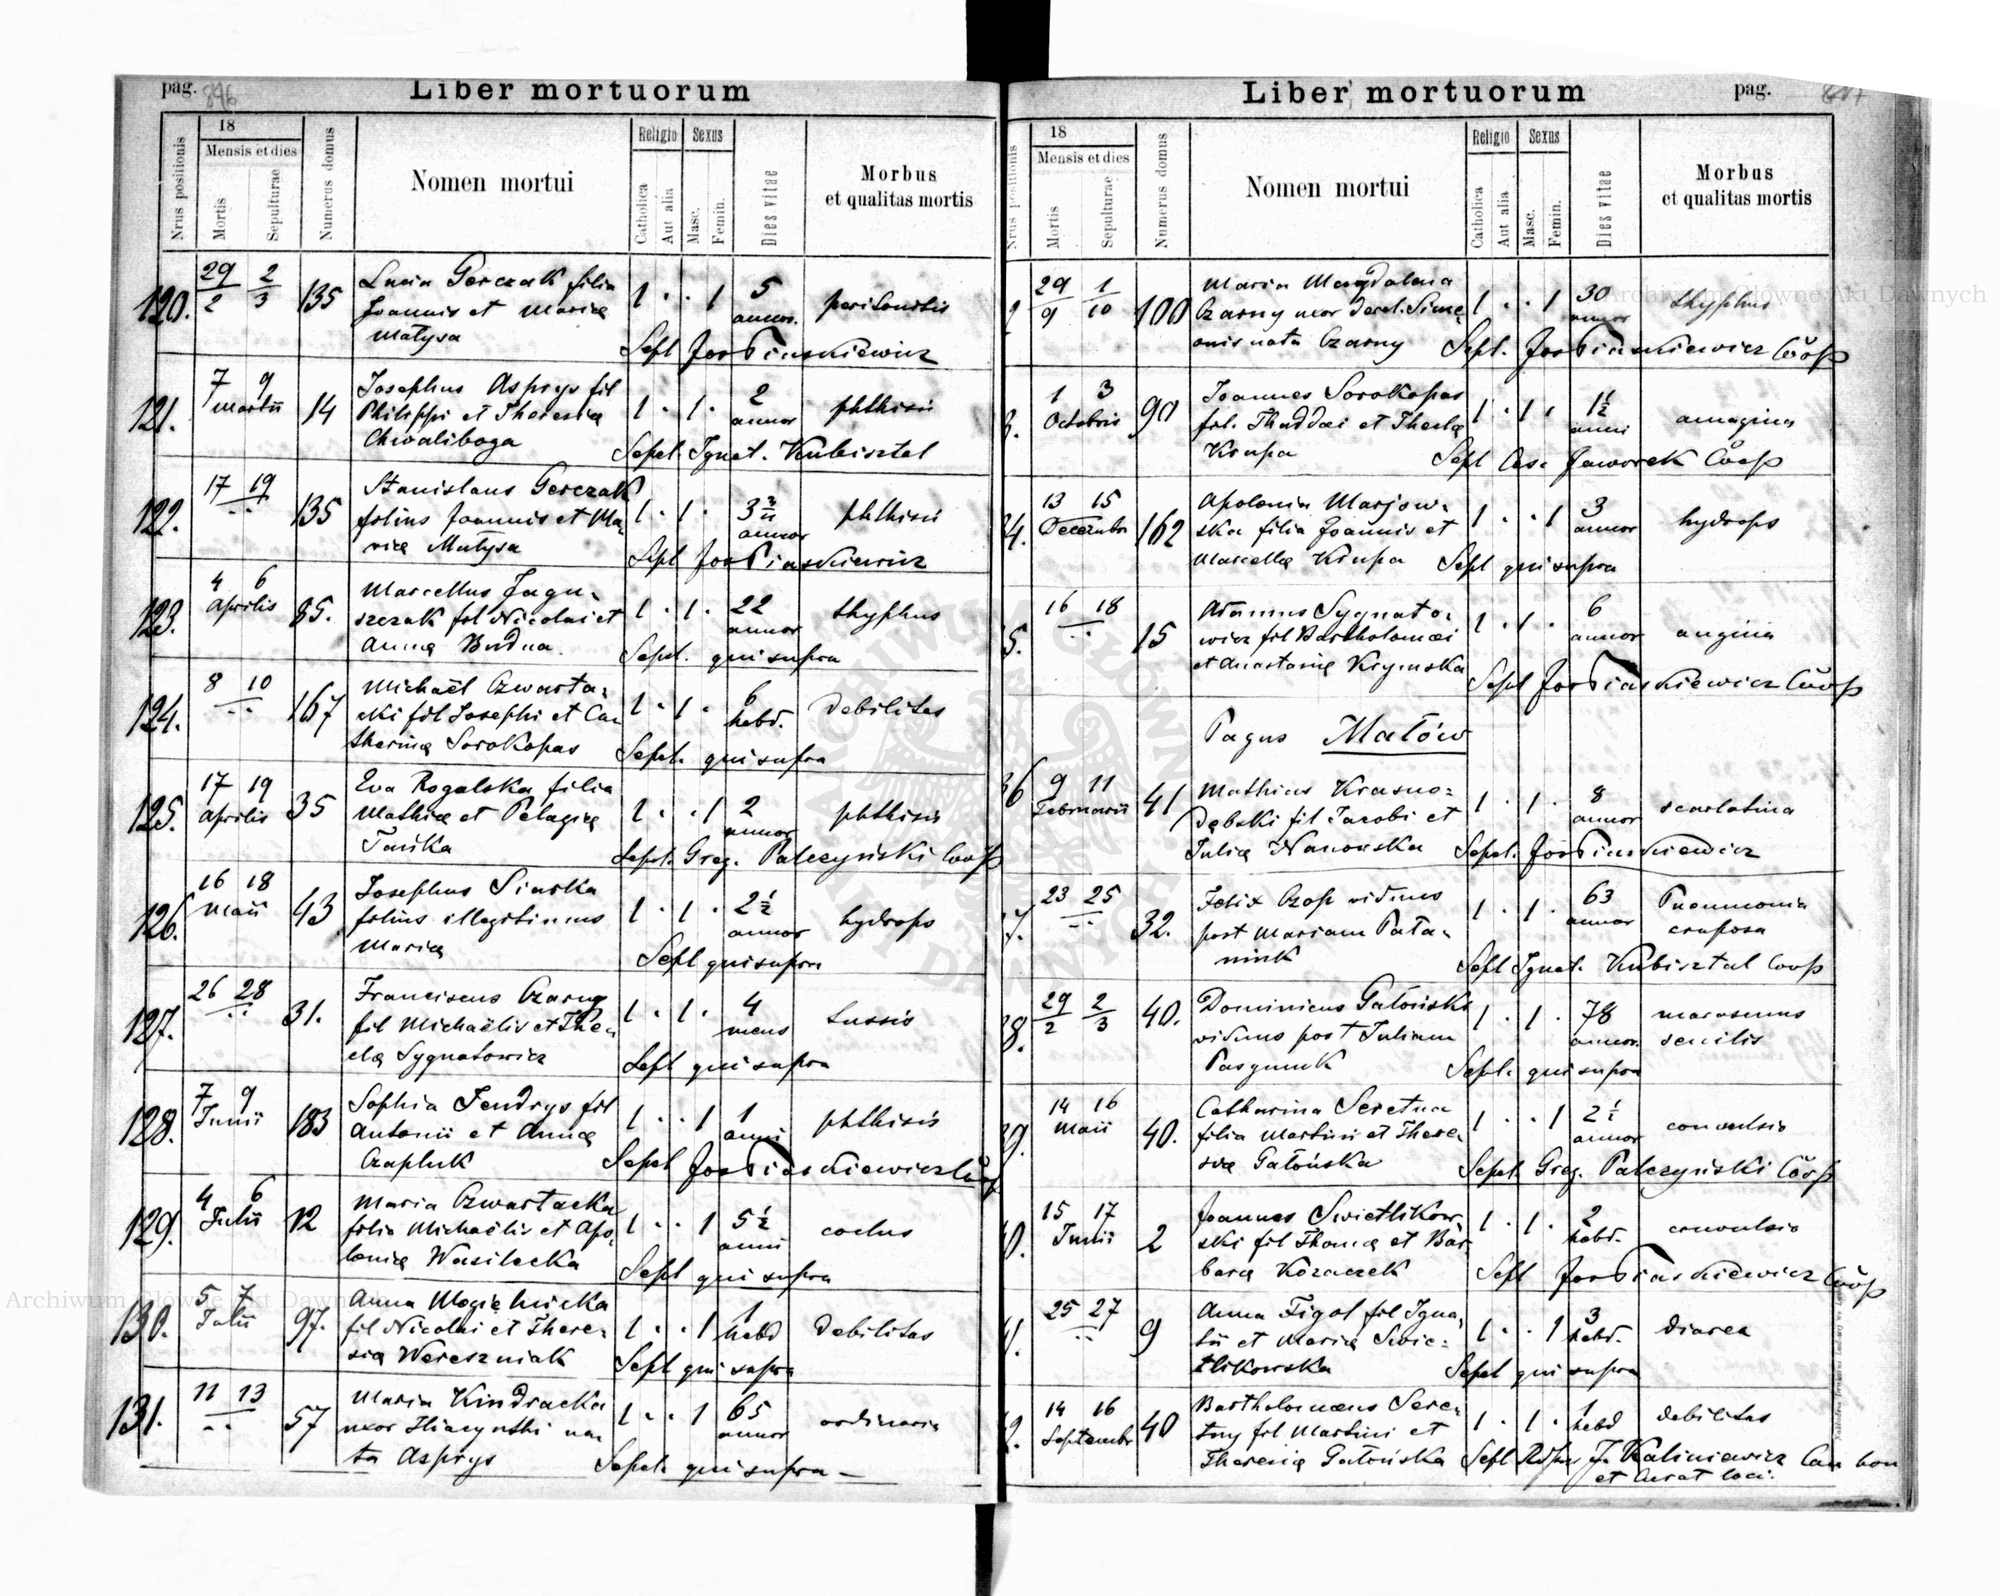 pag. 846 Liber mortuorum
Nrus positionis
18
Mensis et dies
Mortis
Sepulturae
Numerus domus
Nomen mortui
Religio
Catholica
Aut alia
Sexus
Masc.
Femin.
Dies vitae
Morbus
et qualitas mortis
120. 29/2 2/3 135 Lucia Gerczak filia 1 . . 1 5 peritonitis
Joannis et Mariae annor.
Matysa Sepl Jos Piaskiewicz
121. 7 9 14 Josephus Asprys fil 1 . 1 . 2 phthisis
Martii Philippi et Theresiae annor
Chwaliboga Sepel. Ignat. Kubisztal
122. 17 19 135 Stanislaus Gerczak 1 . 1 . 3 phthisis
filius Joannis et Ma- annor
riae Matysa Sepl Jos Piaskiewicz
123. 4 6 85. Marcellus Jagu- 1 . 1 . 22 thyphus
Aprilis szczak fil Nicolai et annor
Annae Budna Sepel. qui supra
124. 8 10 167 Michaël Czwarta- 1 . 1 . 6 debilitas
cki fil Josephi et Ca- hebd.
therinae Sorokopas Sepel. qui supra
125. 17 19 35 Eva Rogalska filia 1 . . 1 2 phthisis
Aprilis Mathiae et Pelagiae annor
Sepel. Greg. Pałczyński Coop
126. 16 18 43 Josephus Siarka 1 . 1 . 2 1/2 hydrops
Maii filius illegitimus annor
Mariae Sepl qui supra
127. 26 28 31. Franciscus Czarny 1 . 1 . 4 tussis
fil Michaëlis et The- mens
clae Sygnatowicz Sepl qui supra
128. 7 9 183 Sophia Jendrys fil 1 . . 1 1 phthisis
Junii Antonii et Annae anni
Czapluk Sepel Jos Piaskiewicz Coop
129. 4 6 12 Maria Czwartacka 1 . . 1 5 1/2
Julii filia Michaëlis et Apo- anni
loniae Wasilecka Sepl qui supra
130. 5 7 97. Anna Mogielnicka 1 . . 1 1 debilitas
Julii fil Nicolai et There- hebd
siae Wereszniak Sepl qui supra
131. 11 13 57 Maria Kindracka 1 . . 1 65 ordinaria
uxor Hiacynthi na- annor
ta Asprys Sepel. qui supra
Liber mortuorum pag.
Nrus positionis
18
Mensis et dies
Mortis
Sepulturae
Numerus domus
Nomen mortui
Religio
Catholica
Aut alia
Sexus
Masc.
Femin.
Dies vitae
Morbus
et qualitas mortis
29/9 1/10 100 Maria Magdalena 1 . . 1 30 thyphus
Czarny uxor derel. Sime- annor
onis nata Czarny Sepl. Jos Piaskiewicz Coop
1 3 90 Joannes Sorokopas 1 . 1 . 1 1/2
Octobris fil. Thaddæi et Theclae anni
Krupa Sepl Jaworek Coop
4. 13 15 162 Apolonia Marjow- 1 . . 1 3 hydrops
Decembr ska filia Joannis et annor
Marcellae Krupa Sepl qui supra
5. 16 18 15 Adamus Sygnato- 1 . 1 . 6 angina
wicz fil Bartholomæi annor
et Anastasiae Krymska Sepl Jos Piaskiewicz Coop
Pagus Małów
36 9 11 41 Mathias Krasno- 1 . 1 . 8 scarlatina
Februarii dębski fil Jacobi et annor
Juliae Nanowska Sepel. Jos Piaskiewicz
7. 23 25 32. Felix Czop viduus 1 . 1 . 63 Pneumonia
post Mariam Pała- annor cruposa
niuk Sepl Ignat. Kubisztal Coop
8. 29/2 2/3 40. Dominicus Gałoński 1 . 1 . 78 marasmus
viduus post Juliam annor. senilis
Sepel. qui supra
9. 14 16 40. Catharina Seretna 1 . . 1 2 1/2 convulsio
Maii filia Martini et There- annor
siae Gałońska Sepel. Greg. Pałczyński Coop
0. 15 17 2 Joannes Swietlikow- 1 . 1 . 2 convulsio
Junii ski fil Thomae et Bar- hebd.
barae Kozaczek Sepl Jos Piaskiewicz Coop
1. 25 27 9 Anna Figol fil Igna- 1 . . 1 3 diarea
tii et Mariae Swie- hebd.
tlikowska Sepel qui supra
2. 14 16 40 Bartholomæus Sere- 1 . 1 . 1 debilitas
Septembr tny fil Martini et hebd
Theresiae Gałońska Sepl J. Kaliniewicz Can hon
et Curat loci.
Archiwum Główne Akt Dawnych
Archiwum Główne Akt Dawnych
ARCHIWUM GŁÓWNE AKT DAWNYCH